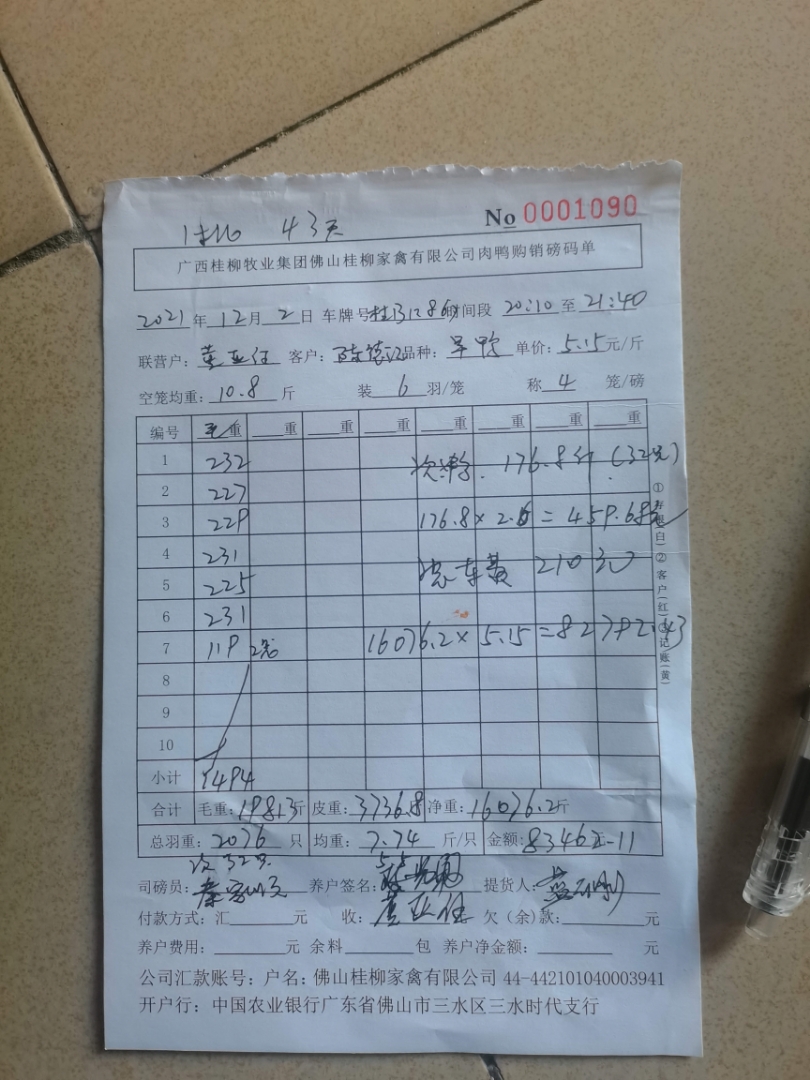 No 0001090
43天
广西桂柳牧业集团佛山桂柳家禽有限公司肉鸭购销磅码单
2021年12月2日 车牌号 时间段 20:10 至 21:40
联营户: 客户: 品种: 单价: 5.15元/斤
空笼均重: 10.8 斤 装 6 羽/笼 称 4 笼/磅
编号 毛重 重 重 重 重 重 重 重
1 232 176.8斤
2 227
3 229 176.8×2.6=459.68
4 231 210
5 225
6 231
7 119 2笼 16076.2×5.15=82792.43
8
9
10
小计 1494
合计 毛重: 19813斤 皮重: 3736.8 净重: 16076.2斤
总羽重: 2076 只 均重: 7.74 斤/只 金额: 83462.11
次32只
司磅员: 养户签名: 提货人:
付款方式: 汇 元 收: 欠(余)款: 元
养户费用: 元 余料 包 养户净金额: 元
公司汇款账号: 户名: 佛山桂柳家禽有限公司 44-442101040003941
开户行: 中国农业银行广东省佛山市三水区三水时代支行
①存根(白)②客户(红)③记账(黄)